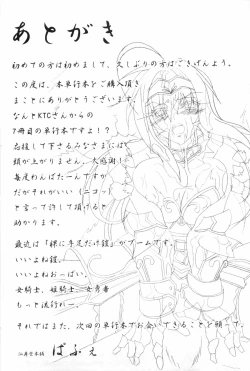 あとがき
初めての方は初めまして、久しぶりの方はごきげんよう。
この度は、本単行本をご購入頂き
まことにありがとうございます。
なんとKTCさんからの
7冊目の単行本ですよ!?
応援して下さるみなさまには
頭が上がりません、大感謝!
毎度わんぱたーんですが
だがそれがいい(ニコッ)
と言って許して頂けると
助かります。
最近は「裸に手足だけ鎧」がブームです。
いいよね鎧。
いいよねおっぱい。
女騎士、姫騎士、女勇者
もっと流行れー。
それではまた、次回の単行本でお会いできることを願って。
ぱふぇ